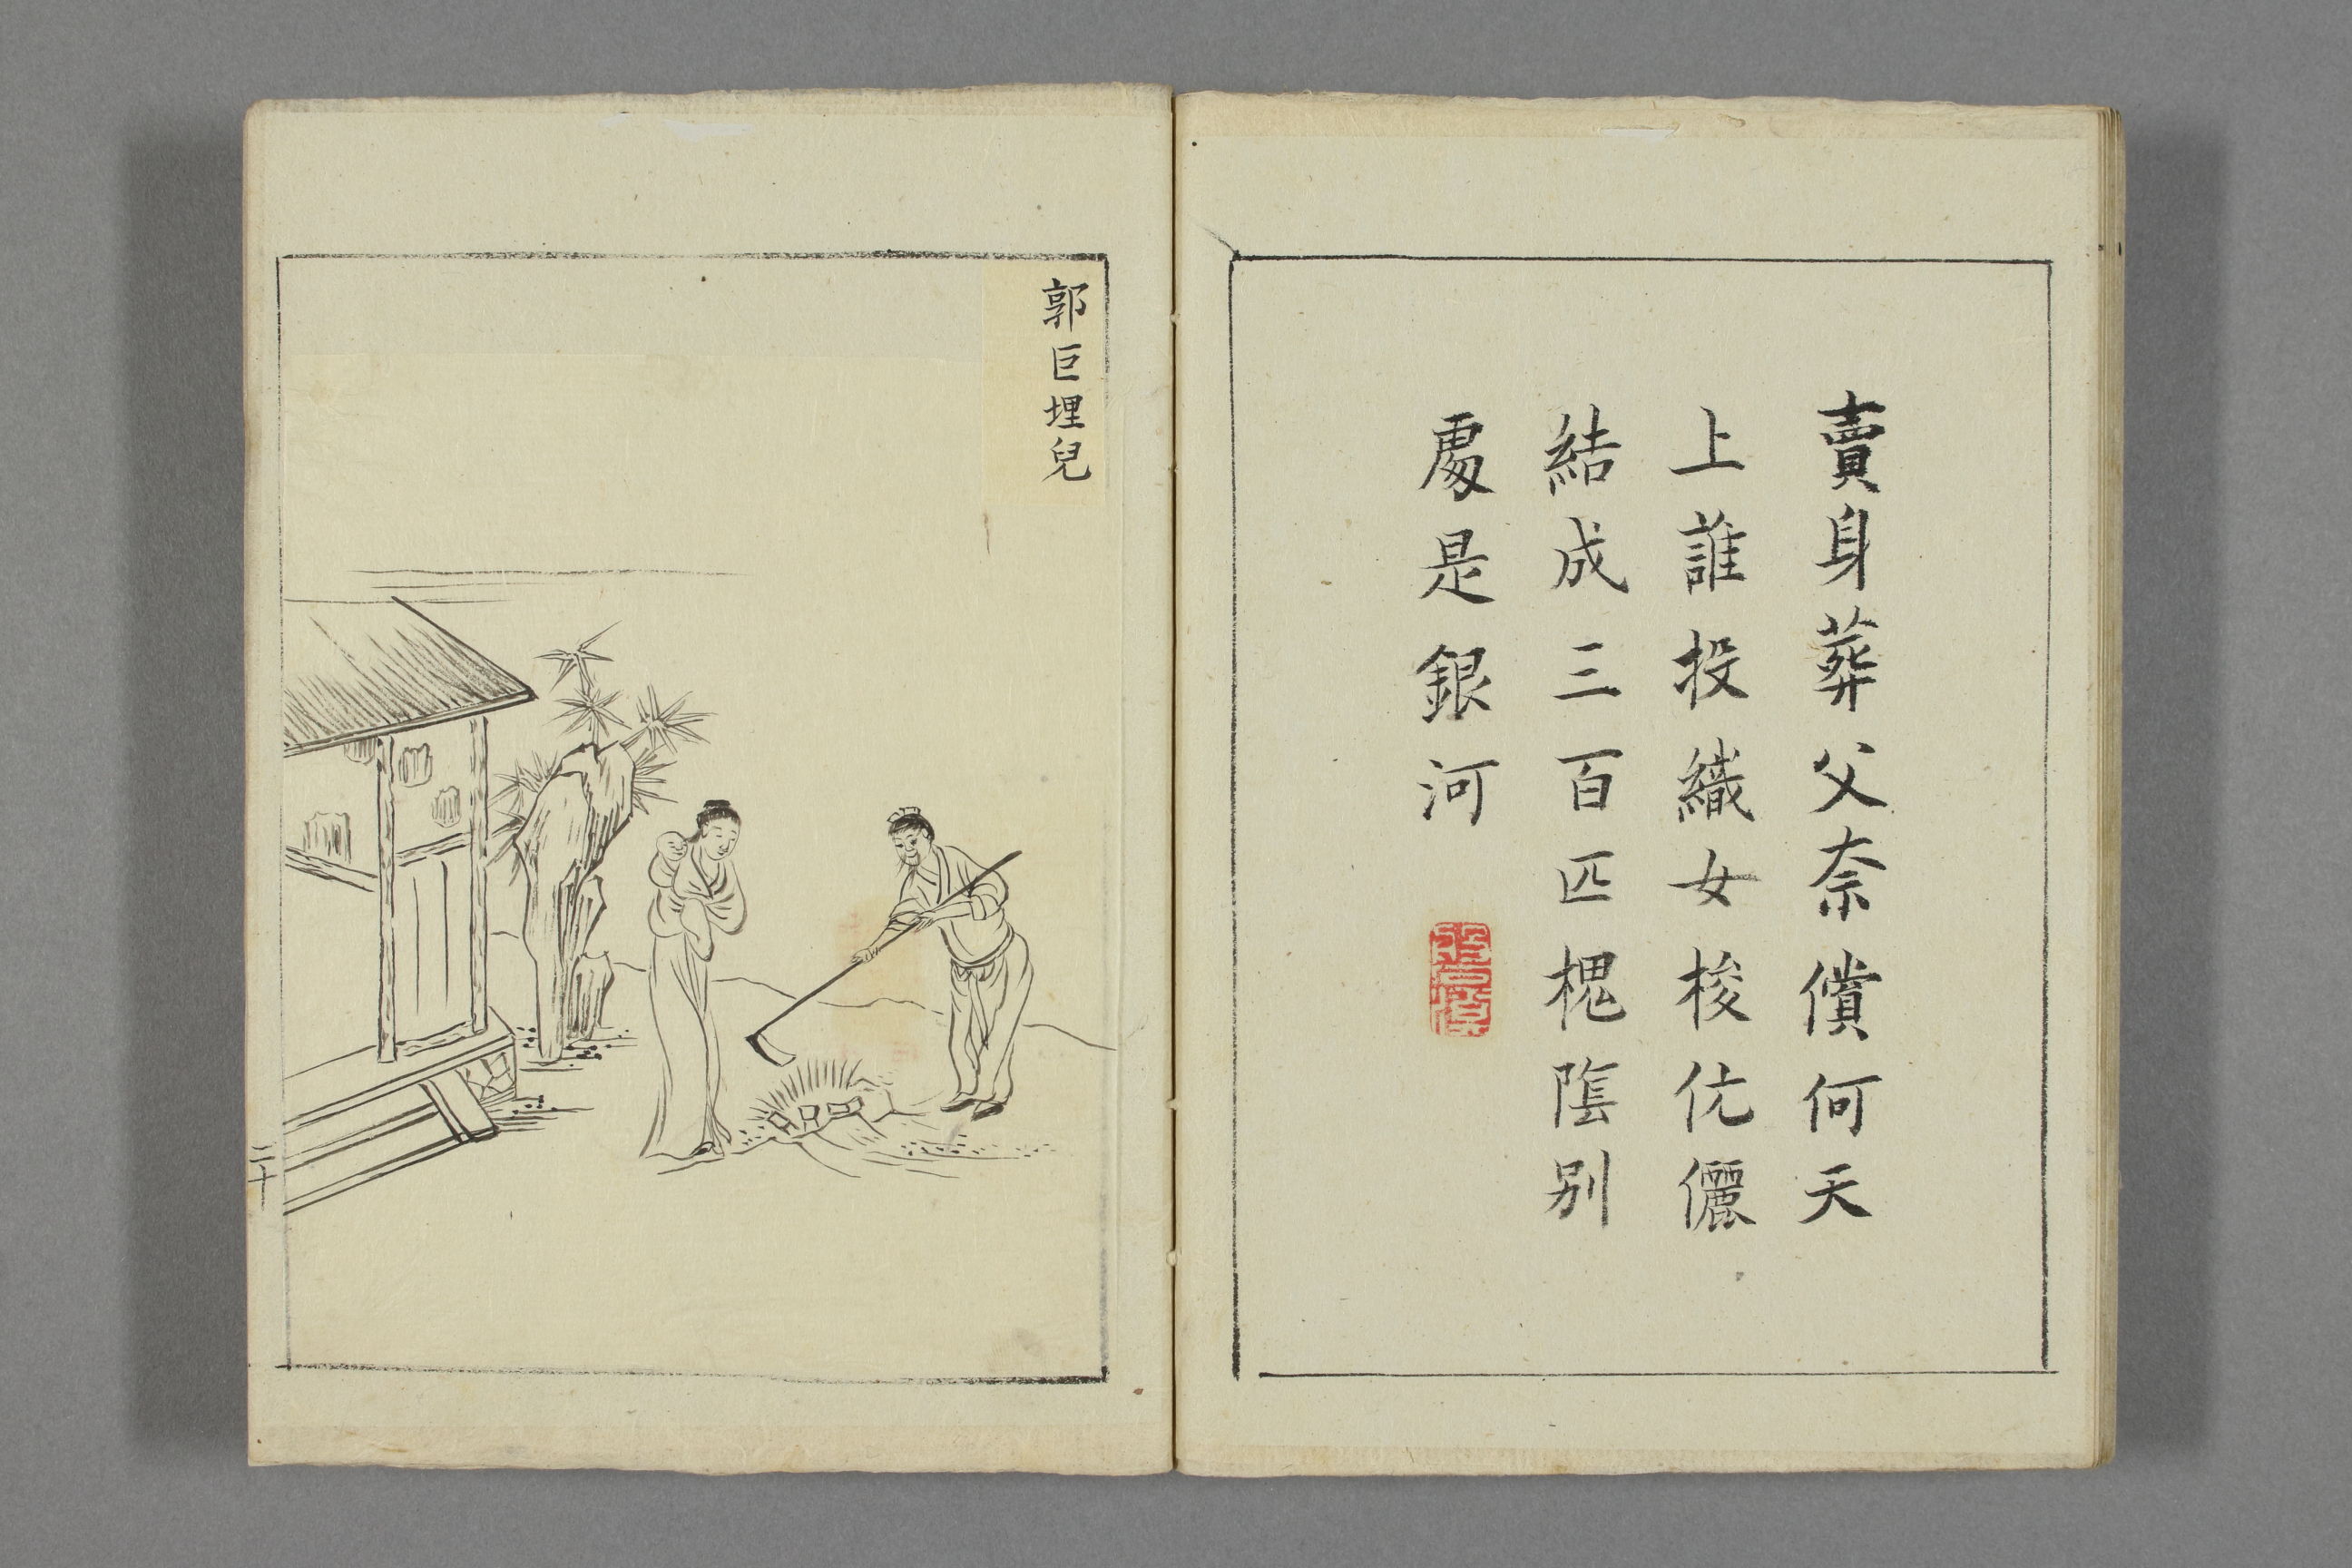 賣身葬父奈償何天
上誰投織女梭伉儷
結成三百匹槐蔭别
處是銀河
郭巨埋兒
二十